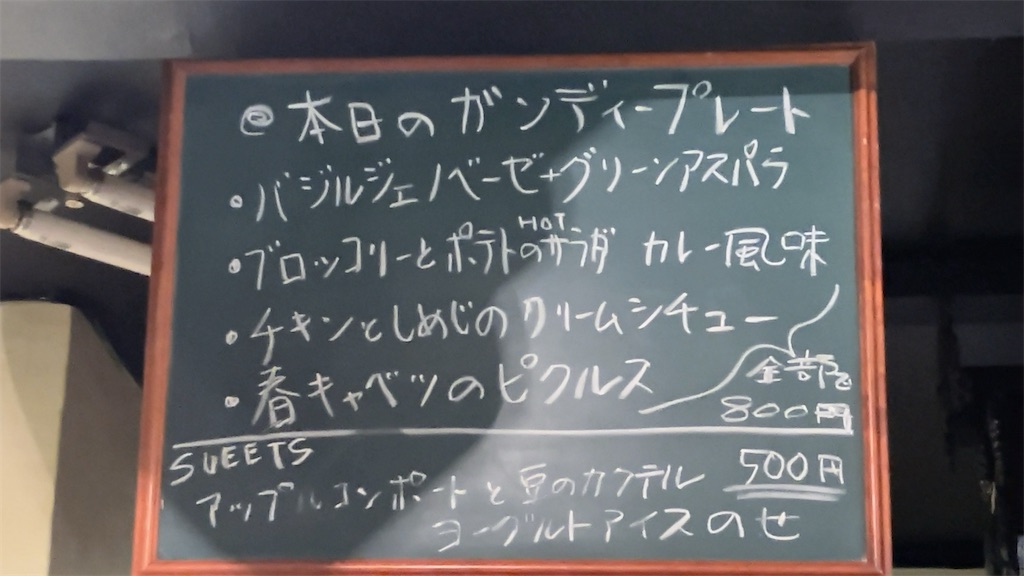 ◎ 本日のガンディープレート
・バジルジェノベーゼ+グリーンアスパラ
・ブロッコリーとポテトのHOTサラダ カレー風味
・チキンとしめじのクリームシチュー
・春キャベツのピクルス
全部で
800円
SWEETS
アップルコンポートと豆のカクテル 500円
ヨーグルトアイスのせ